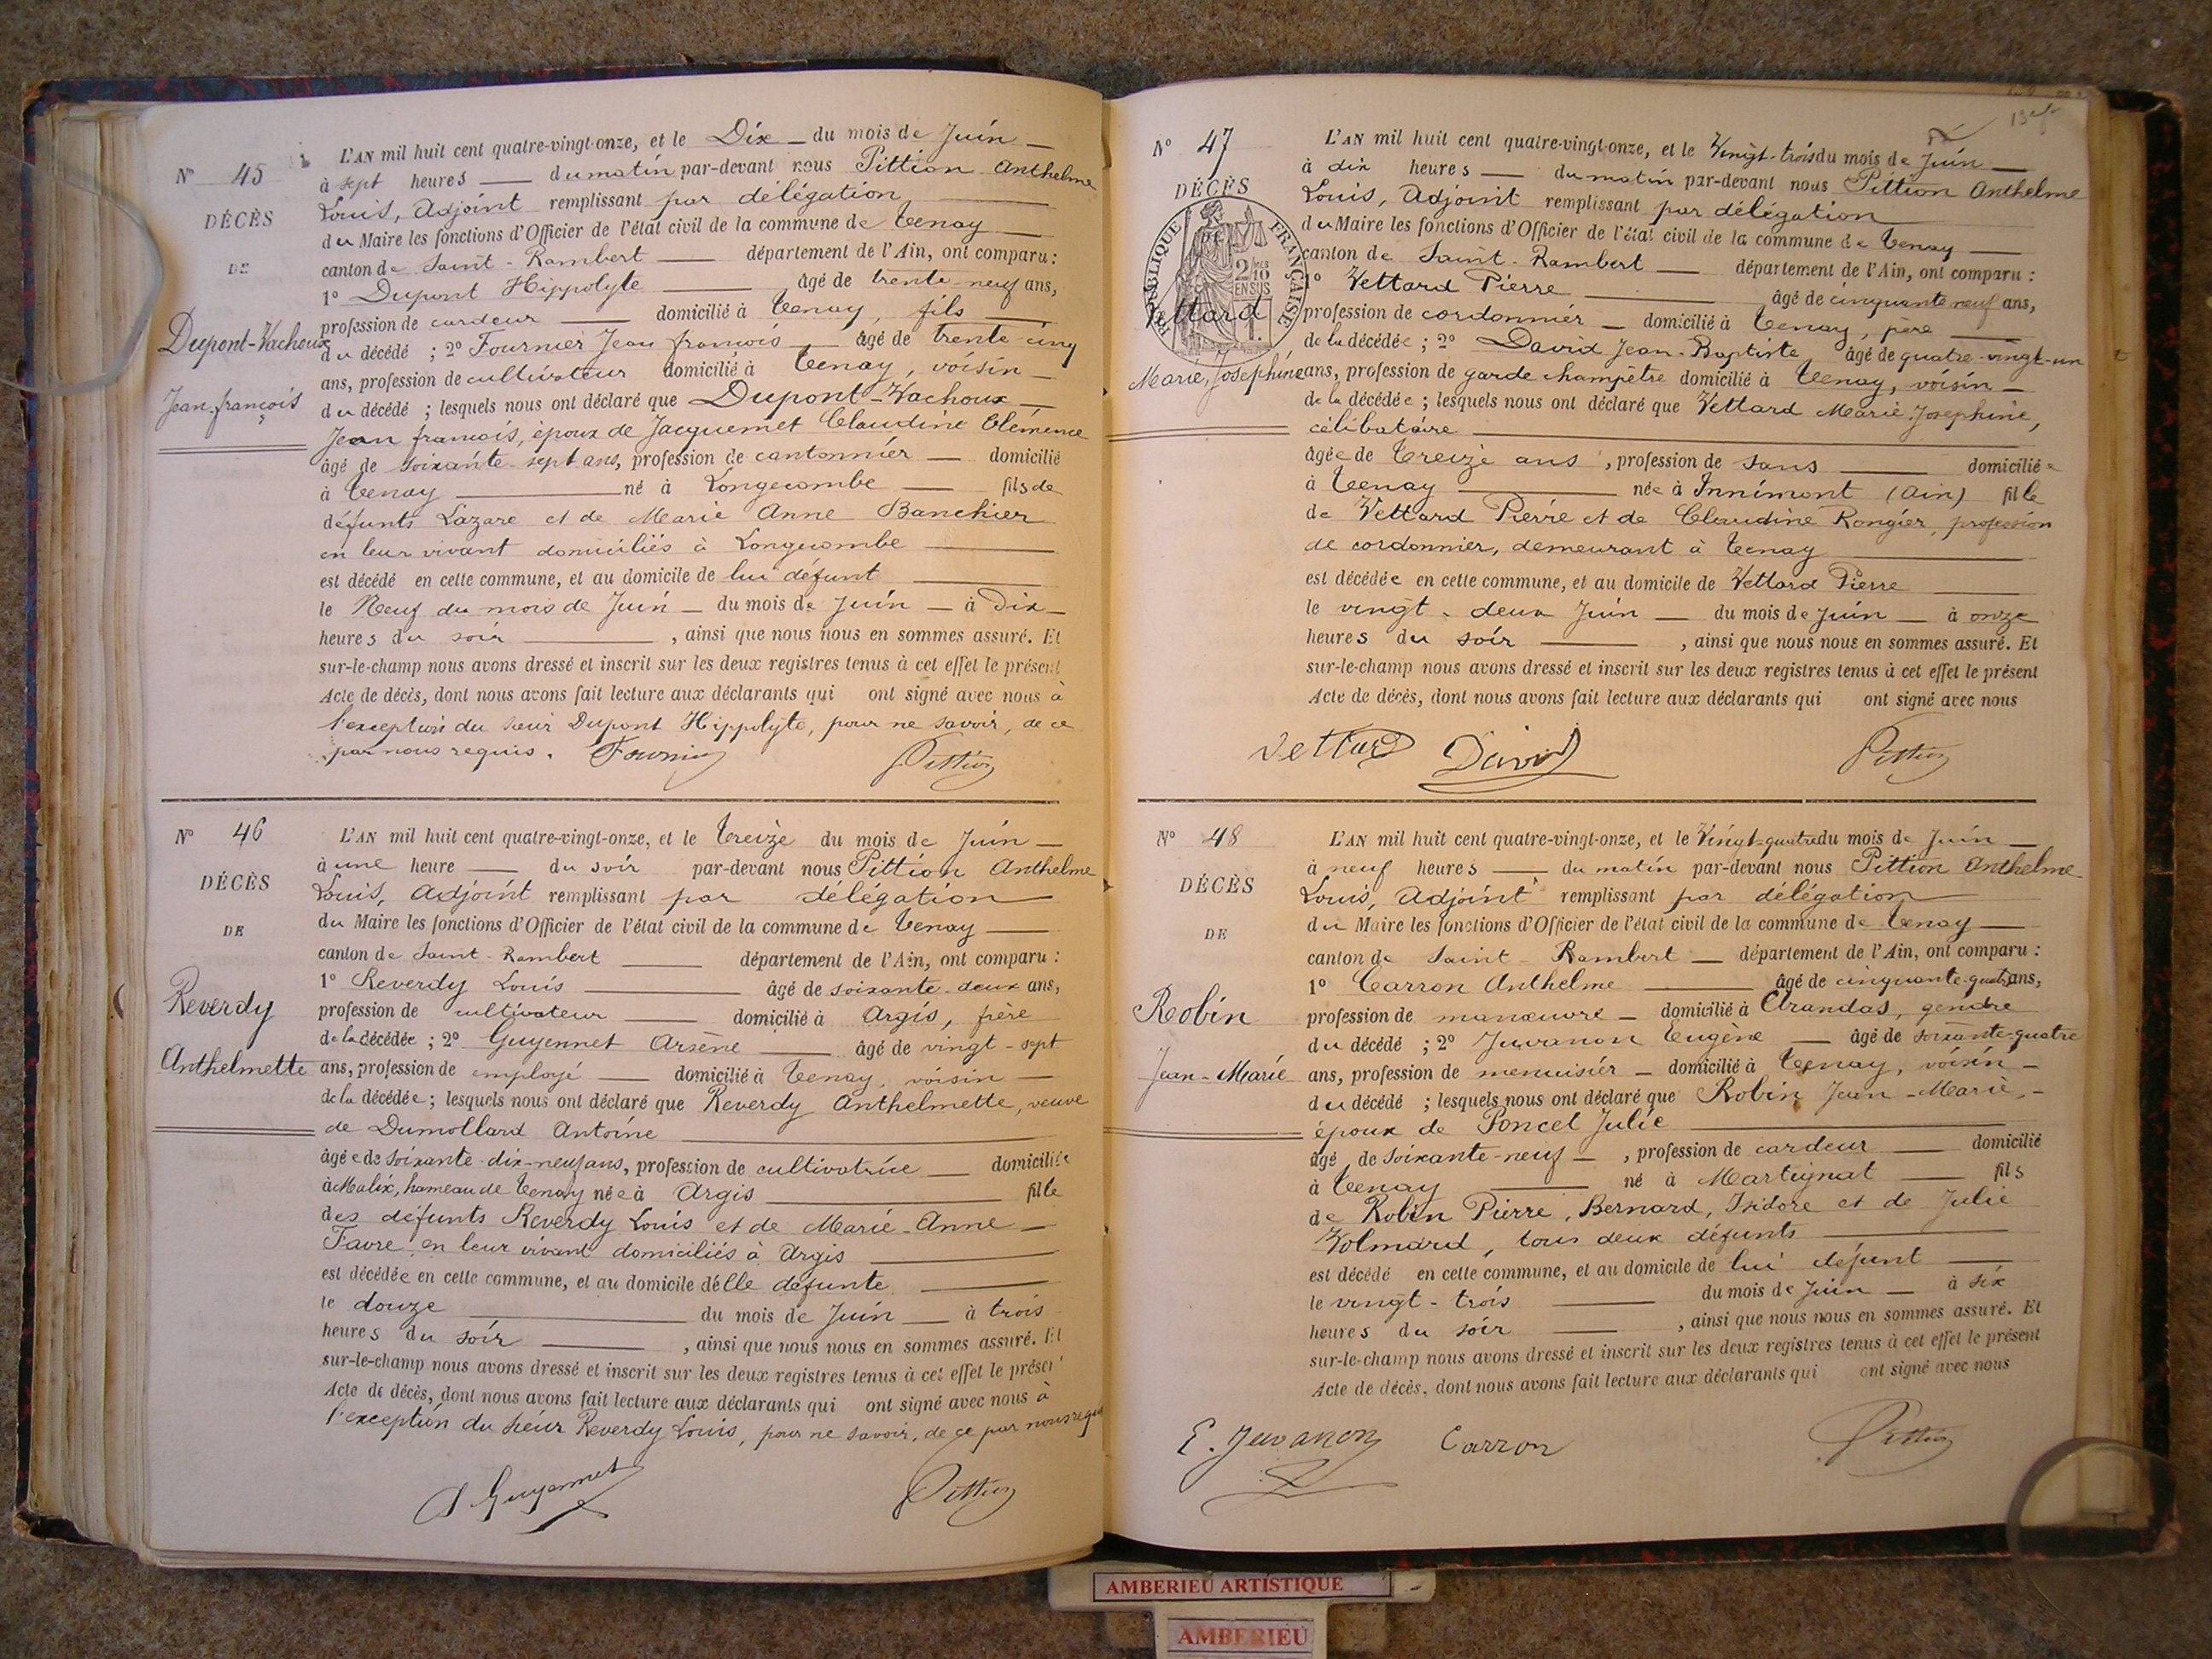 N° 45
DÉCÈS
DE
Dupont-Vachoux
Jean-françois
L'AN mil huit cent quatre-vingt-onze, et le Dix du mois de Juin
à sept heures du matin par-devant nous Pittion Anthelme
Louis, Adjoint remplissant par délégation
du Maire les fonctions d'Officier de l'état civil de la commune de Tenay
canton de Saint-Rambert département de l'Ain, ont comparu :
1° Dupont Hippolyte âgé de trente-neuf ans,
profession de cardeur domicilié à Tenay, fils
du décédé ; 2° Fournier Jean françois âgé de trente-cinq
ans, profession de cultivateur domicilié à Tenay, voisin
du décédé ; lesquels nous ont déclaré que Dupont-Vachoux
Jean françois, époux de Jacquemet Claudine Clémence
âgé de soixante-sept ans, profession de cantonnier domicilié
à Tenay né à Longecombe fils de
défunts Lazare et de Marie Anne Banchier
en leur vivant domiciliés à Longecombe
est décédé en cette commune, et au domicile de lui défunt
le Neuf du mois de Juin du mois de Juin à Dix
heures du soir , ainsi que nous nous en sommes assuré. Et
sur-le-champ nous avons dressé et inscrit sur les deux registres tenus à cet effet le présent
Acte de décès, dont nous avons fait lecture aux déclarants qui ont signé avec nous à
l'exception du sieur Dupont Hippolyte, pour ne savoir, de ce
par nous requis. Fournier Pittion
N° 46
DÉCÈS
DE
Reverdy
Anthelmette
L'AN mil huit cent quatre-vingt-onze, et le Treize du mois de Juin
à une heure du soir par-devant nous Pittion Anthelme
Louis, Adjoint remplissant par délégation
du Maire les fonctions d'Officier de l'état civil de la commune de Tenay
canton de Saint-Rambert département de l'Ain, ont comparu :
1° Reverdy Louis âgé de soixante-deux ans,
profession de cultivateur domicilié à Argis, frère
de la décédée ; 2° Guyennet Arsène âgé de vingt-sept
ans, profession de employé domicilié à Tenay, voisin
de la décédée ; lesquels nous ont déclaré que Reverdy Anthelmette, veuve
de Dumollard Antoine
âgée de soixante-dix-neuf ans, profession de cultivatrice domiciliée
à Malix, hameau de Tenay née à Argis fille
des défunts Reverdy Louis et de Marie-Anne
Favre, en leur vivant domiciliés à Argis
est décédée en cette commune, et au domicile d'elle défunte
le douze du mois de Juin à trois
heures du soir , ainsi que nous nous en sommes assuré. Et
sur-le-champ nous avons dressé et inscrit sur les deux registres tenus à cet effet le présent
Acte de décès, dont nous avons fait lecture aux déclarants qui ont signé avec nous à
l'exception du sieur Reverdy Louis, pour ne savoir, de ce par nous requis
A Guyennet Pittion
N° 47
DÉCÈS
RÉPUBLIQUE FRANÇAISE
2/10 EN SUS
Vettard
Marie, Joséphine
L'AN mil huit cent quatre-vingt-onze, et le Vingt-trois du mois de Juin
à dix heures du matin par-devant nous Pittion Anthelme
Louis, Adjoint remplissant par délégation
du Maire les fonctions d'Officier de l'état civil de la commune de Tenay
canton de Saint-Rambert département de l'Ain, ont comparu :
1° Vettard Pierre âgé de cinquante neuf ans,
profession de cordonnier domicilié à Tenay, père
de la décédée ; 2° David Jean-Baptiste âgé de quatre-vingt-un
ans, profession de garde champêtre domicilié à Tenay, voisin
de la décédée ; lesquels nous ont déclaré que Vettard Marie Joséphine,
célibataire
âgée de Treize ans , profession de sans domiciliée
à Tenay née à Innimont (Ain) fille
de Vettard Pierre et de Claudine Rongier, profession
de cordonnier, demeurant à Tenay
est décédée en cette commune, et au domicile de Vettard Pierre
le vingt-deux Juin du mois de Juin à onze
heures du soir , ainsi que nous nous en sommes assuré. Et
sur-le-champ nous avons dressé et inscrit sur les deux registres tenus à cet effet le présent
Acte de décès, dont nous avons fait lecture aux déclarants qui ont signé avec nous
Vettard David Pittion
N° 48
DÉCÈS
DE
Robin
Jean-Marie
L'AN mil huit cent quatre-vingt-onze, et le Vingt-quatre du mois de Juin
à neuf heures du matin par-devant nous Pittion Anthelme
Louis, Adjoint remplissant par délégation
du Maire les fonctions d'Officier de l'état civil de la commune de Tenay
canton de Saint-Rambert département de l'Ain, ont comparu :
1° Carron Anthelme âgé de cinquante-quatre ans,
profession de manœuvre domicilié à Arandas, gendre
du décédé ; 2° Juvanon Eugène âgé de soixante-quatre
ans, profession de menuisier domicilié à Tenay, voisin
du décédé ; lesquels nous ont déclaré que Robin Jean-Marie,
époux de Poncet Julie
âgé de soixante-neuf , profession de cardeur domicilié
à Tenay né à Martignat fils
de Robin Pierre, Bernard, Isidore et de Julie
Volmard, tous deux défunts
est décédé en cette commune, et au domicile de lui défunt
le vingt-trois du mois de Juin à six
heures du soir , ainsi que nous nous en sommes assuré. Et
sur-le-champ nous avons dressé et inscrit sur les deux registres tenus à cet effet le présent
Acte de décès, dont nous avons fait lecture aux déclarants qui ont signé avec nous
E. Juvanon Carron Pittion
AMBERIEU ARTISTIQUE
AMBERIEU